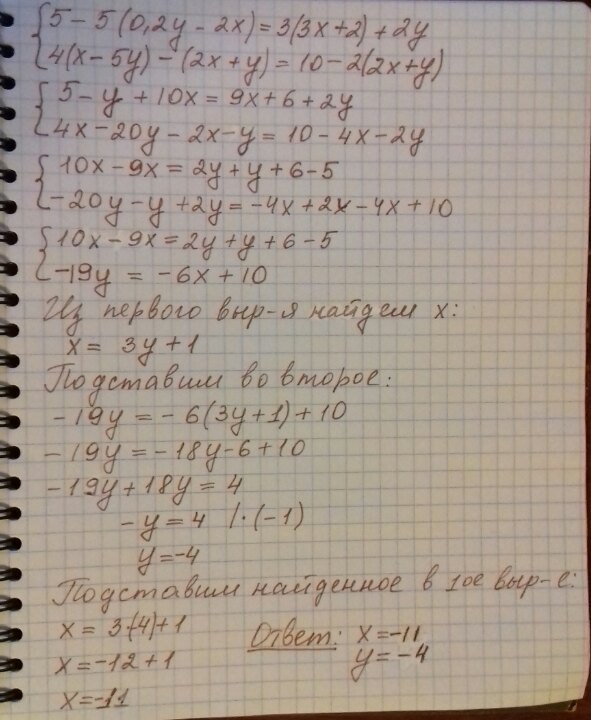 5 - 5(0,2y - 2x) = 3(3x+2) + 2y
4(x - 5y) - (2x + y) = 10 - 2(2x+y)
5 - y + 10x = 9x + 6 + 2y
4x - 20y - 2x - y = 10 - 4x - 2y
10x - 9x = 2y + y + 6 - 5
-20y - y + 2y = -4x + 2x - 4x + 10
10x - 9x = 2y + y + 6 - 5
-19y = -6x + 10
Из первого выр-я найдем x:
x = 3y + 1
Подставим во второе:
-19y = -6(3y+1) + 10
-19y = -18y - 6 + 10
-19y + 18y = 4
-y = 4 /·(-1)
y = -4
Подставим найденное в 1ое выр-е:
x = 3(-4)+1
x = -12 + 1
x = -11
Ответ: x = -11
y = -4